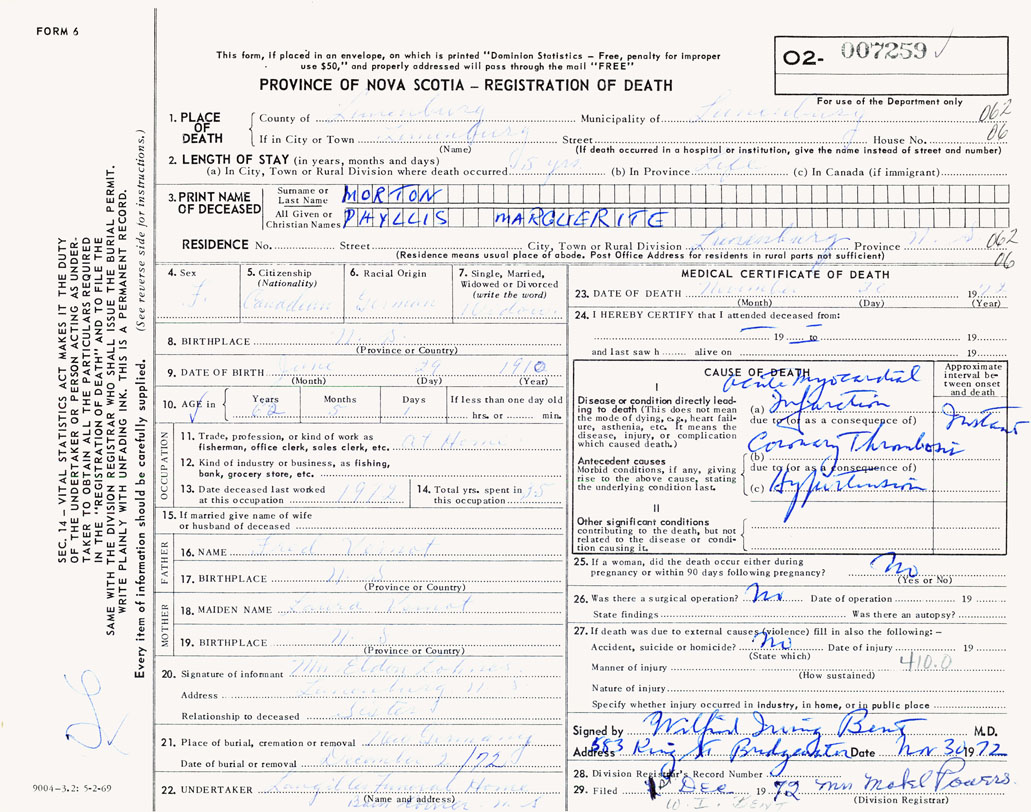 FORM 6
This form, if placed in an envelope, on which is printed "Dominion Statistics – Free, penalty for improper
use $50," and properly addressed will pass through the mail "FREE"
PROVINCE OF NOVA SCOTIA – REGISTRATION OF DEATH
O2- 007259
For use of the Department only
062
06
1. PLACE OF DEATH
County of Lunenburg Municipality of Lunenburg
If in City or Town Lunenburg Street House No.
(Name) (If death occurred in a hospital or institution, give the name instead of street and number)
2. LENGTH OF STAY (in years, months and days)
(a) In City, Town or Rural Division where death occurred yrs (b) In Province Life (c) In Canada (if immigrant)
3. PRINT NAME OF DECEASED
Surname or Last Name MORTON
All Given or Christian Names PHYLLIS MARGUERITE
RESIDENCE No. Street City, Town or Rural Division Lunenburg Province N. S 062
(Residence means usual place of abode. Post Office Address for residents in rural parts not sufficient) 06
4. Sex F.
5. Citizenship (Nationality) Canadian
6. Racial Origin German
7. Single, Married, Widowed or Divorced (write the word) Widow
8. BIRTHPLACE N. S
(Province or Country)
9. DATE OF BIRTH June 29 1910
(Month) (Day) (Year)
10. AGE in Years 62 Months 5 Days 1 If less than one day old hrs. or min.
OCCUPATION
11. Trade, profession, or kind of work as fisherman, office clerk, sales clerk, etc. At Home
12. Kind of industry or business, as fishing, bank, grocery store, etc.
13. Date deceased last worked at this occupation 1972
14. Total yrs. spent in this occupation 35
15. If married give name of wife or husband of deceased
FATHER
16. NAME Fred
17. BIRTHPLACE N. S
(Province or Country)
MOTHER
18. MAIDEN NAME Laura
19. BIRTHPLACE N. S
(Province or Country)
20. Signature of informant Mrs. Eldon
Address Lunenburg N. S
Relationship to deceased Sister
21. Place of burial, cremation or removal New Germany
Date of burial or removal December 2/72
22. UNDERTAKER Funeral Home
(Name and address)
MEDICAL CERTIFICATE OF DEATH
23. DATE OF DEATH November 30 1972
(Month) (Day) (Year)
24. I HEREBY CERTIFY that I attended deceased from:
19 to 19
and last saw h alive on 19
CAUSE OF DEATH
Approximate interval between onset and death
I
Disease or condition directly leading to death (This does not mean the mode of dying, e.g., heart failure, asthenia, etc. It means the disease, injury, or complication which caused death.)
(a) Acute Myocardial Infarction Instant
due to (or as a consequence of)
Antecedent causes
Morbid conditions, if any, giving rise to the above cause, stating the underlying condition last.
(b) Coronary Thrombosis
due to (or as a consequence of)
(c) Hypertension
II
Other significant conditions
contributing to the death, but not related to the disease or condition causing it.
25. If a woman, did the death occur either during pregnancy or within 90 days following pregnancy? No
(Yes or No)
26. Was there a surgical operation? No Date of operation 19
State findings Was there an autopsy?
27. If death was due to external causes (violence) fill in also the following: –
Accident, suicide or homicide? No Date of injury 19
(State which) 410.0
Manner of injury
(How sustained)
Nature of injury
Specify whether injury occurred in industry, in home, or in public place
Signed by Wilfrid Irving Bent M.D.
Address 553 King St Bridgewater Date Nov 30 1972
28. Division Registrar's Record Number
29. Filed 1st Dec 1972 Mrs Mabel Powers
(Division Registrar)
W. I. BENT
SEC. 14 – VITAL STATISTICS ACT MAKES IT THE DUTY
OF THE UNDERTAKER OR PERSON ACTING AS UNDER-
TAKER TO OBTAIN ALL THE PARTICULARS REQUIRED
IN THE "REGISTRATION OF DEATH" AND TO FILE THE
SAME WITH THE DIVISION REGISTRAR WHO SHALL ISSUE THE BURIAL PERMIT.
WRITE PLAINLY WITH UNFADING INK. THIS IS A PERMANENT RECORD.
Every item of information should be carefully supplied. (See reverse side for instructions.)
9004-3.2: 5-2-69